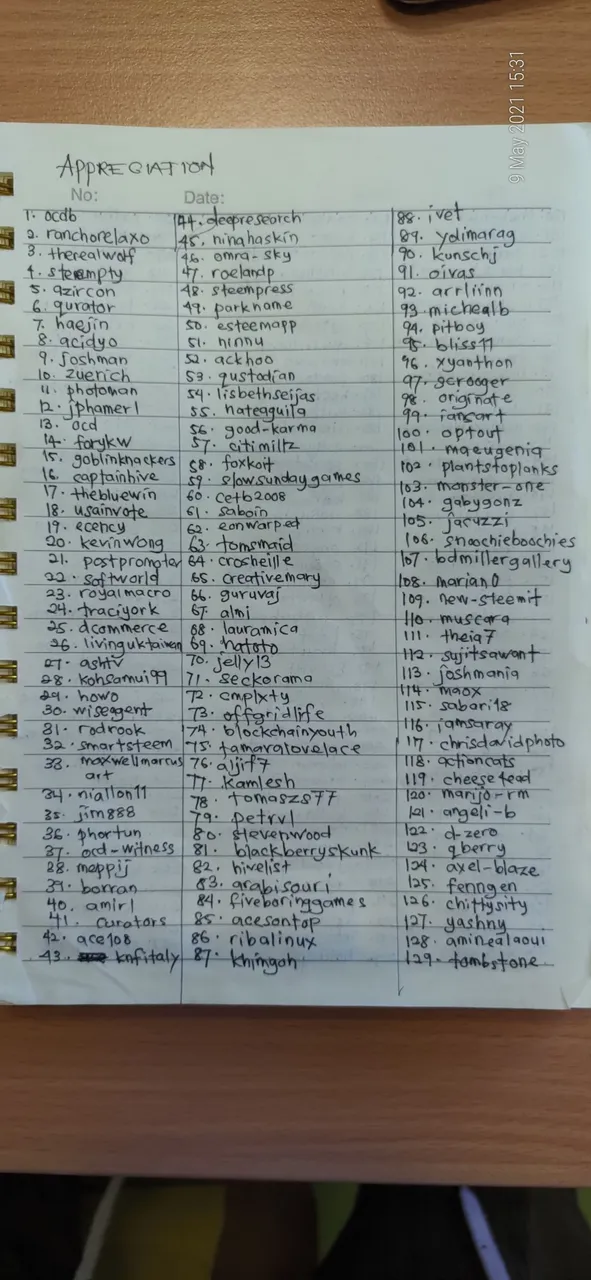 9 May 2021 15:31
APPRECIATION
No:
Date:
1. ocdb
2. ranchorelaxo
3. therealwolf
4. steempty
5. azircon
6. qurator
7. haejin
8. acidyo
9. joshman
10. zuerich
11. photoman
12. jphamer1
13. ocd
14. forykw
15. goblinknackers
16. captainhive
17. thebluewin
18. usainvote
19. ecency
20. kevinwong
21. postpromoter
22. softworld
23. royalmacro
24. traciyork
25. dcommerce
26. livinguktaiwan
27. ashtv
28. kohsamui99
29. howo
30. wiseagent
31. rodrook
32. smartsteem
33. maxwellmarcus
art
34. niallon11
35. jim888
36. phortun
37. ocd-witness
38. meppij
39. borran
40. amirl
41. curators
42. ace108
43. knfitaly
44. deepresearch
45. ninahaskin
46. omra-sky
47. roelandp
48. steempress
49. parkname
50. esteemapp
51. ninnu
52. ackhoo
53. qustodian
54. lisbethseijas
55. hateaguila
56. good-karma
57. citimiltz
58. foxkoit
59. slowsundaygames
60. cetb2008
61. saboin
62. eonwarped
63. tomsmaid
64. crosheille
65. creativemary
66. guruvaj
67. almi
68. lauramica
69. hatoto
70. jelly13
71. seckorama
72. cmplxty
73. offgridlife
74. blockchainyouth
75. tamaralovelace
76. aljif7
77. kamlesh
78. tomaszs77
79. petrvl
80. stevenwood
81. blackberryskunk
82. hivelist
83. arabisouri
84. fiveboringgames
85. acesontop
86. ribalinux
87. khingoh
88. ivet
89. ydimarag
90. kunschj
91. oivas
92. arrliinn
93. michealb
94. pitboy
95. bliss11
96. xyanthon
97. gcrooger
98. originate
99. iansart
100. optout
101. maeugenia
102. plantstoplanks
103. monster-one
104. gabygonz
105. jacuzzi
106. snoochieboochies
107. bdmillergallery
108. marian0
109. new-steemit
110. muscara
111. theia7
112. sujitsawant
113. joshmania
114. maox
115. sabari18
116. iamsaray
117. chrisdavidphoto
118. actioncats
119. cheesetead
120. manjo-rm
121. angeli-b
122. d-zero
123. qberry
124. axel-blaze
125. fenngen
126. chittysity
127. yashny
128. aminealaoui
129. tombstone